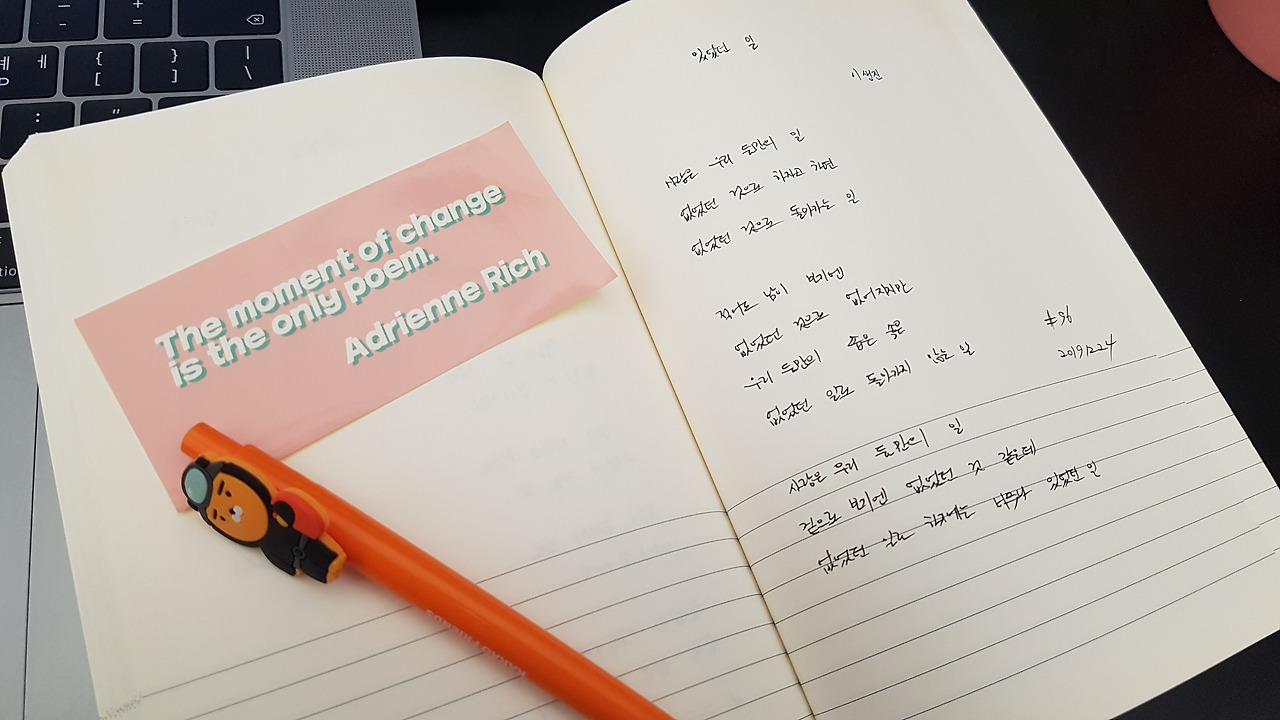 The moment of change
is the only poem.
Adrienne Rich
있었던 일
이생진
사랑은 우리 둘만의 일
없었던 것으로 하자고 하면
없었던 것으로 돌아가는 일
적어도 남이 보기엔
없었던 것으로 없어지지만
우리 둘만의 좁은 속은
없었던 일로 돌아가지 않는 일
#96
20191224
사랑은 우리 둘만의 일
겉으로 보기엔 없었던 것 같은데
없었던 일로 하기에는 너무나 있었던 일